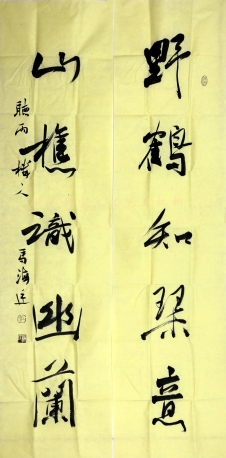 野鶴知琴意
山樵識幽蘭
聽雨樓人
馬海